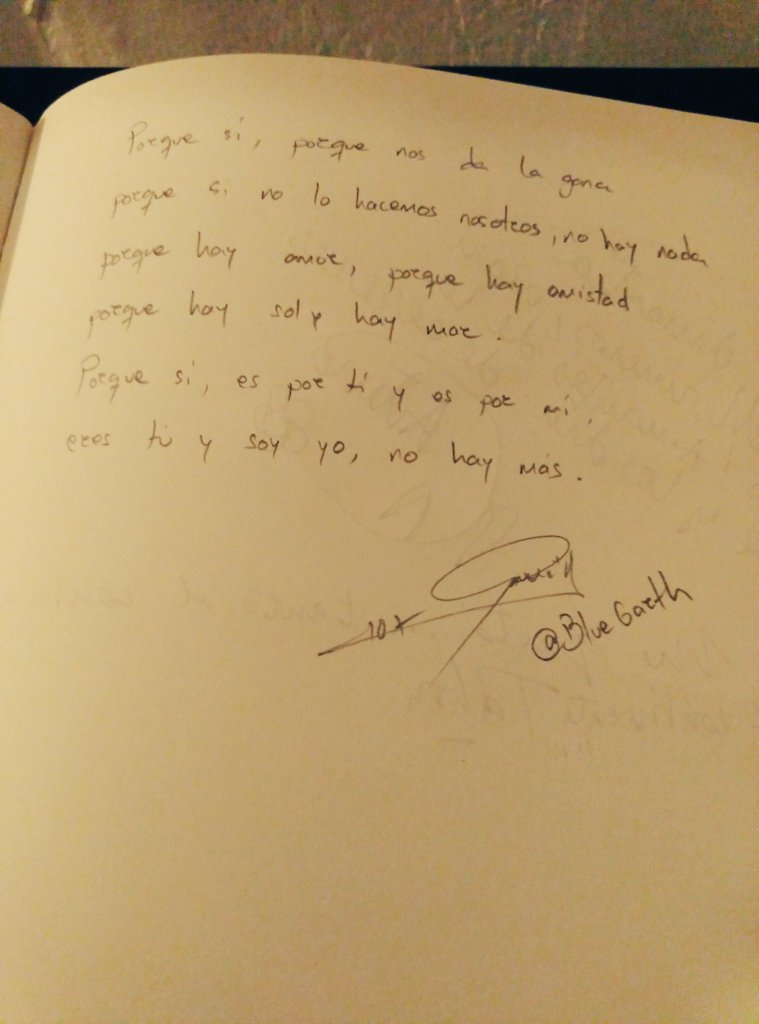 Porque sí, porque nos da la gana
porque si no lo hacemos nosotros, no hay nada
porque hay amor, porque hay amistad
porque hay sol y hay mar.
Porque sí, es por ti y es por mí,
eres tú y soy yo, no hay más.
@BlueGarth